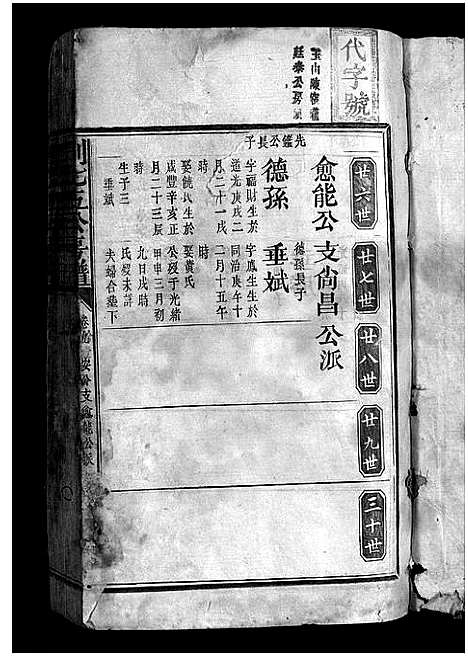 代字號
廿六世
廿七世
廿八世
廿九世
三十世
愈能公支尙昌公派
先鑑公長子
德孫
字福財生於
道光庚戌二
月二十一戌
時
娶饒氏生於
咸豐辛亥正
月二十三辰
時
生子三
垂斌
德孫長子
垂斌
字鳳生生於
同治庚午十
二月十五午
時
娶黃氏
公歿于光緒
甲申三月初
九日戌時
氏歿未詳
夫婦合塟下